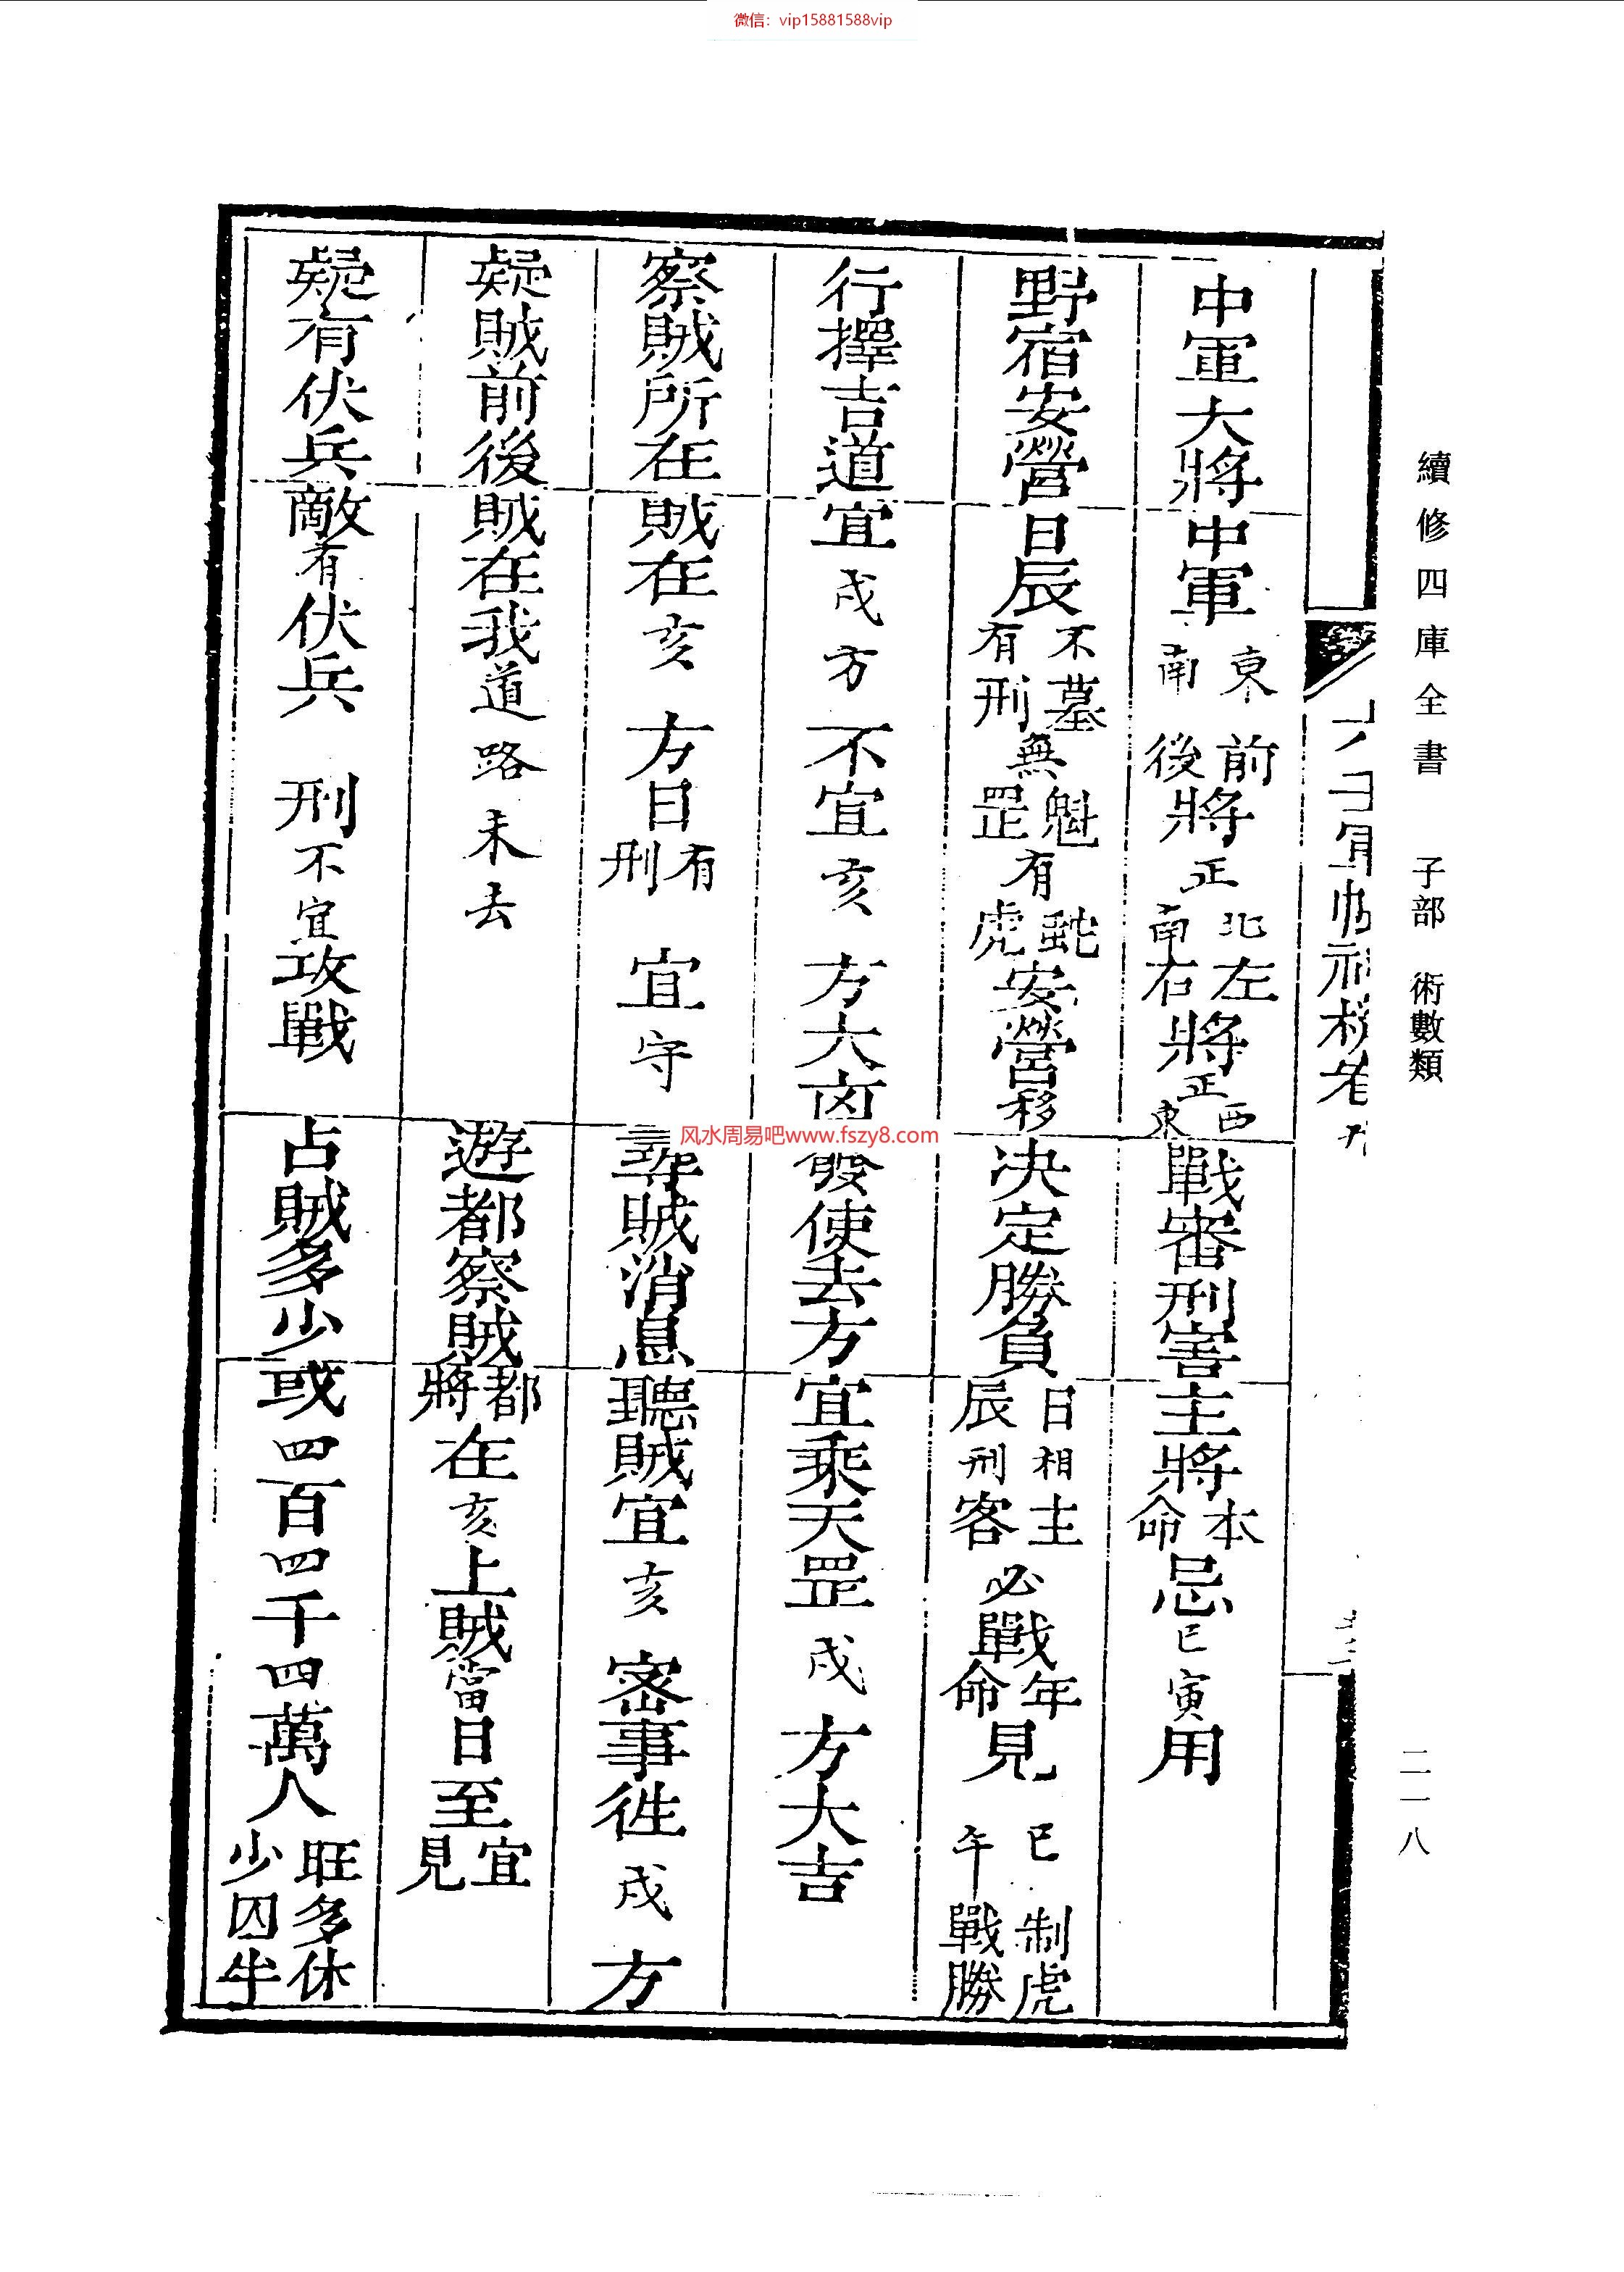 微信：vip15881588vip
續修四庫全書 子部 術數類
二一八
中軍大將
中軍東南前後將正北南左右將正西東
戰審刑害
主將本命忌巳寅用
野宿安營
日辰不墓有刑無魁罡有蛇虎安營移
決定勝負
日辰相刑主客必戰年命見巳午制虎戰勝
行擇吉道
宜戌方不宜亥方大凶
發使去方
宜乘天罡戌方大吉
察賊所在
賊在亥方日有刑宜守
尋賊消息
聽賊宜亥密事徃戌方
疑賊前後
賊在我道路未去
遊都察賊
都將在亥上賊當日至宜見
疑有伏兵
敵有伏兵刑不宜攻戰
占賊多少
或四百四千四萬人旺多休少囚半
风水周易吧www.fszy8.com